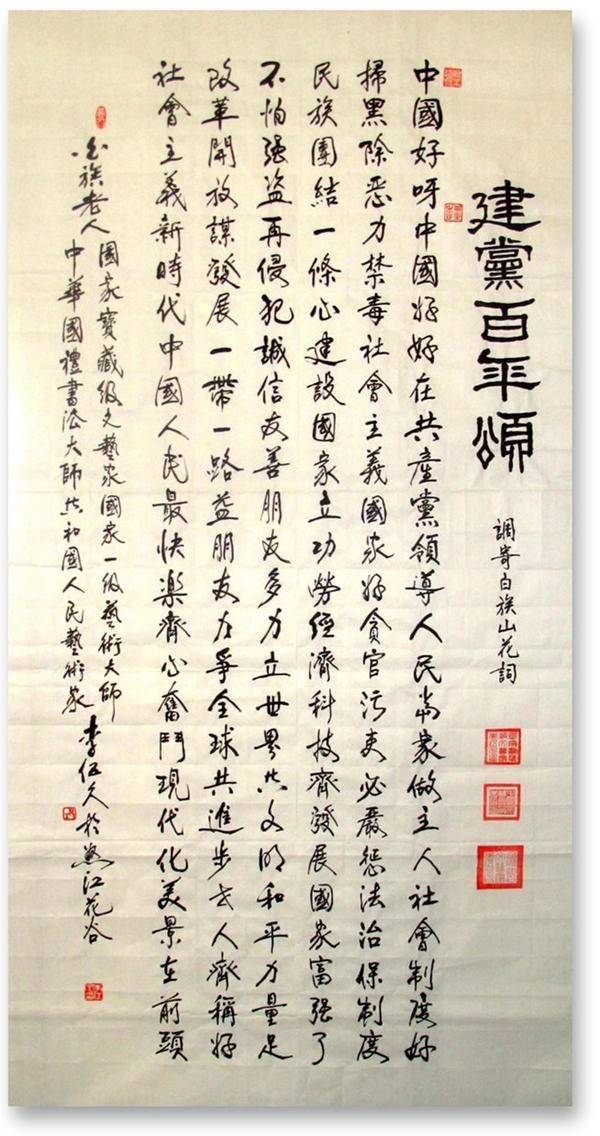 建黨百年頌
調寄白族山花詞
中國好呀中國好好在共產黨領導人民當家做主人社會制度好
掃黑除恶力禁毒社會主義國家好貪官污吏必嚴懲法治保制度
民族團結一條心建設國家立功勞經濟科技齊發展國家富强了
不怕强盜再侵犯誠信友善朋友多力立世界共文明和平力量足
改革開放謀發展一帶一路益朋友力爭全球共進步世人齊稱好
社會主義新時代中國人民最快楽齊心奮鬥現代化美景在前頭
白族老人
國家寶藏級文藝家國家一級藝術大師
中華國禮書法大師共和國人民藝術家
李伍久於江花谷